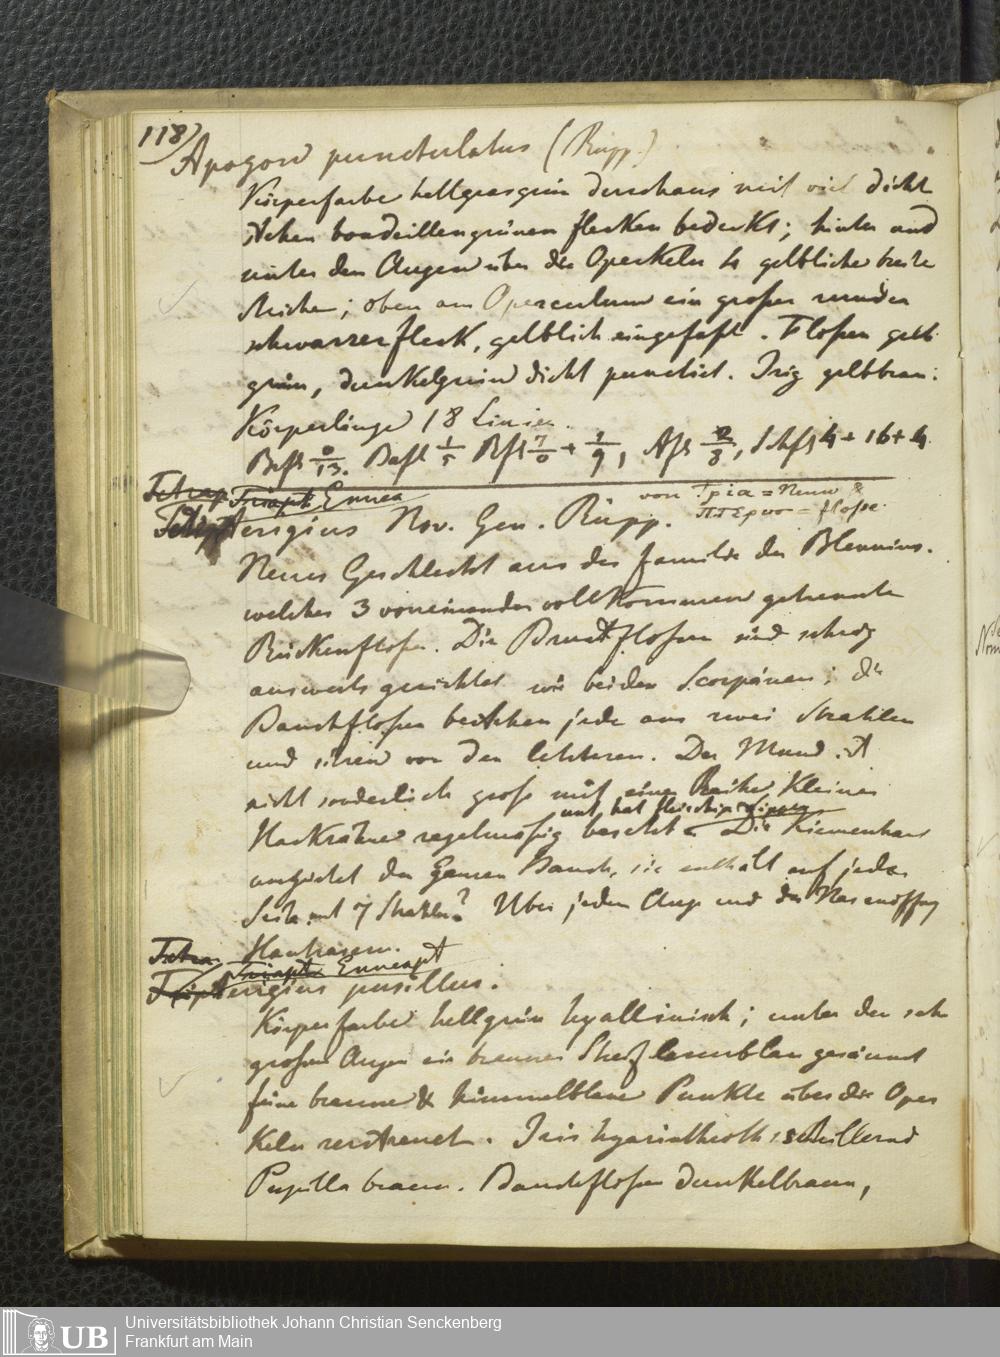 118)
Apogon punctulatus (Rüpp.)
Körperfarbe hellgrasgrün durchaus mit viel dicht
stehen bouteillengrünen flecken bedeckt; hinter und
unter den Augen über die Operkeln 4 gelbliche breite
striche; oben am Operculum ein großer runder
schwarzer fleck, gelblich eingefaßt. Floßen gelb
grün, dunkelgrün dicht punctirt. Iris gelbbraun.
Körperlänge 18 Linien.
Brfl 0/13. Bafl 1/5 Rfl 7/0 + 1/9, Afl 2/8, Schfl 4 + 16 + 4.
Tetrap Triapt. Ennea
von τρια = Neun &
πτερυο = floße.
Terigius Nov. Gen. Rüpp.
Neues Geschlecht aus der familie der Blennius.
welches 3 voneinander vollkommen getrennte
Rückenfloßen. Die Brustfloßen sind schräg
auswerts gerichtet wie bei den Scorpänen; die
Bauchfloßen bestehen jede aus zwei Strahlen
und sitzen vor den letzteren. Der Mund ist
nicht sonderlich groß mit einer Reihe Kleiner
und hat fleischige Lippen
Hackzähne regelmäßig besetzt. Die Kiemenhaut
umgürtet den Ganzen Bauch, sie enthält auf jeder
Seite mit 7 Strahlen? Über jedem Auge und der Nasenöffng
Hautfasern.
Tetra Triapt Enneapt
Tripterigius pusillus.
Körperfarbe hellgrün hyallinisch; unter den sehr
großen Augen ein brauner Streif lasurblau gesäumt
feine braune & himmelblaue Punkte über die Oper
keln zerstreuet. Iris hyazinthroth schillernd
Pupilla braun. Bauchfloßen dunkelbraun,
Universitätsbibliothek Johann Christian Senckenberg
Frankfurt am Main
UB